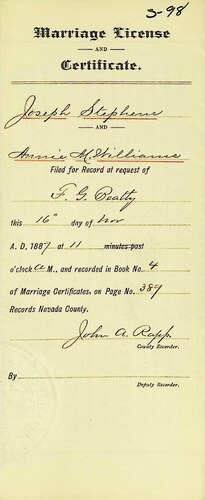 S-98
Marriage License
AND
Certificate.
Joseph Stephens
AND
Annie M. Williams
Filed for Record at request of
F. G. Beatty
this 16" day of Nov
A. D. 1887 at 11 minutes past
o'clock A M., and recorded in Book No. 4
of Marriage Certificates, on Page No. 389
Records Nevada County.
John A. Rapp
County Recorder.
By
Deputy Recorder.